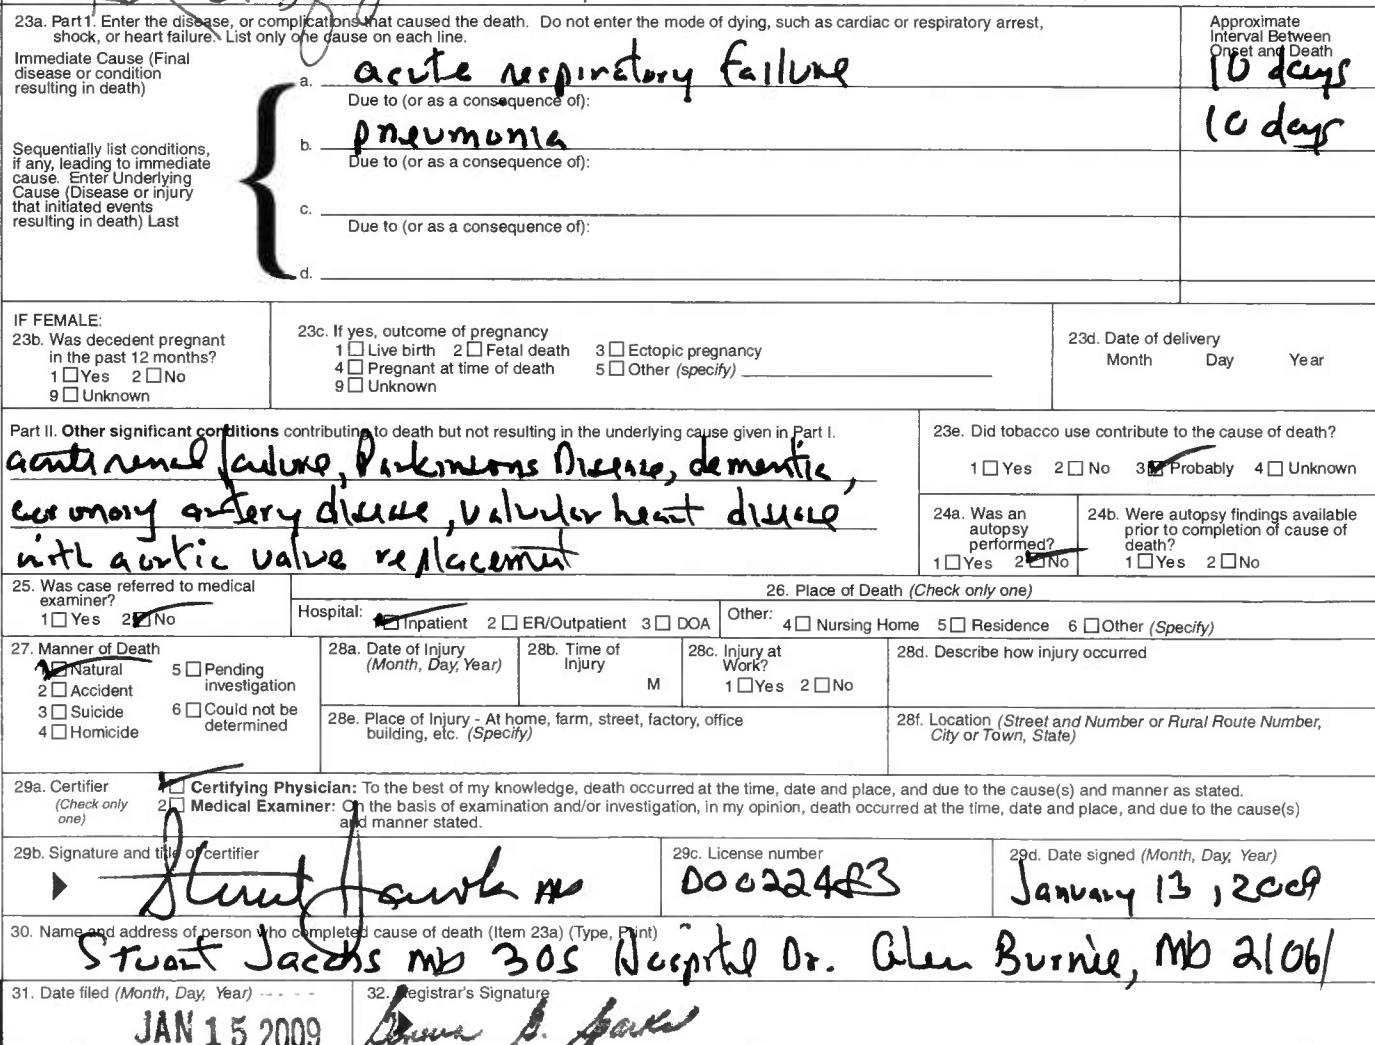 23a. Part1. Enter the disease, or complications that caused the death. Do not enter the mode of dying, such as cardiac or respiratory arrest,
shock, or heart failure. List only one cause on each line.
Approximate
Interval Between
Onset and Death
Immediate Cause (Final
disease or condition
resulting in death)
a. acute respiratory failure 10 days
Due to (or as a consequence of):
b. pneumonia 10 days
Due to (or as a consequence of):
Sequentially list conditions,
if any, leading to immediate
cause. Enter Underlying
Cause (Disease or injury
that initiated events
resulting in death) Last
c.
Due to (or as a consequence of):
d.
IF FEMALE:
23b. Was decedent pregnant
in the past 12 months?
1 Yes 2 No
9 Unknown
23c. If yes, outcome of pregnancy
1 Live birth 2 Fetal death 3 Ectopic pregnancy
4 Pregnant at time of death 5 Other (specify)
9 Unknown
23d. Date of delivery
Month Day Year
Part II. Other significant conditions contributing to death but not resulting in the underlying cause given in Part I.
acute renal failure, Parkinsons Disease, dementia,
coronary artery disease, valvular heart disease
with aortic valve replacement
23e. Did tobacco use contribute to the cause of death?
1 Yes 2 No 3 Probably 4 Unknown
24a. Was an
autopsy
performed?
1 Yes 2 No
24b. Were autopsy findings available
prior to completion of cause of
death?
1 Yes 2 No
25. Was case referred to medical
examiner?
1 Yes 2 No
26. Place of Death (Check only one)
Hospital: Inpatient 2 ER/Outpatient 3 DOA Other: 4 Nursing Home 5 Residence 6 Other (Specify)
27. Manner of Death
1 Natural 5 Pending
investigation
2 Accident
3 Suicide 6 Could not be
determined
4 Homicide
28a. Date of Injury
(Month, Day, Year)
28b. Time of
Injury
M
28c. Injury at
Work?
1 Yes 2 No
28d. Describe how injury occurred
28e. Place of Injury - At home, farm, street, factory, office
building, etc. (Specify)
28f. Location (Street and Number or Rural Route Number,
City or Town, State)
29a. Certifier
(Check only
one)
Certifying Physician: To the best of my knowledge, death occurred at the time, date and place, and due to the cause(s) and manner as stated.
2 Medical Examiner: On the basis of examination and/or investigation, in my opinion, death occurred at the time, date and place, and due to the cause(s)
and manner stated.
29b. Signature and title of certifier
Stuart Jacobs MD
29c. License number
D0022483
29d. Date signed (Month, Day, Year)
January 13, 2009
30. Name and address of person who completed cause of death (Item 23a) (Type, Print)
Stuart Jacobs MD 305 Hospital Dr. Glen Burnie, MD 21061
31. Date filed (Month, Day, Year)
JAN 15 2009
32. Registrar's Signature